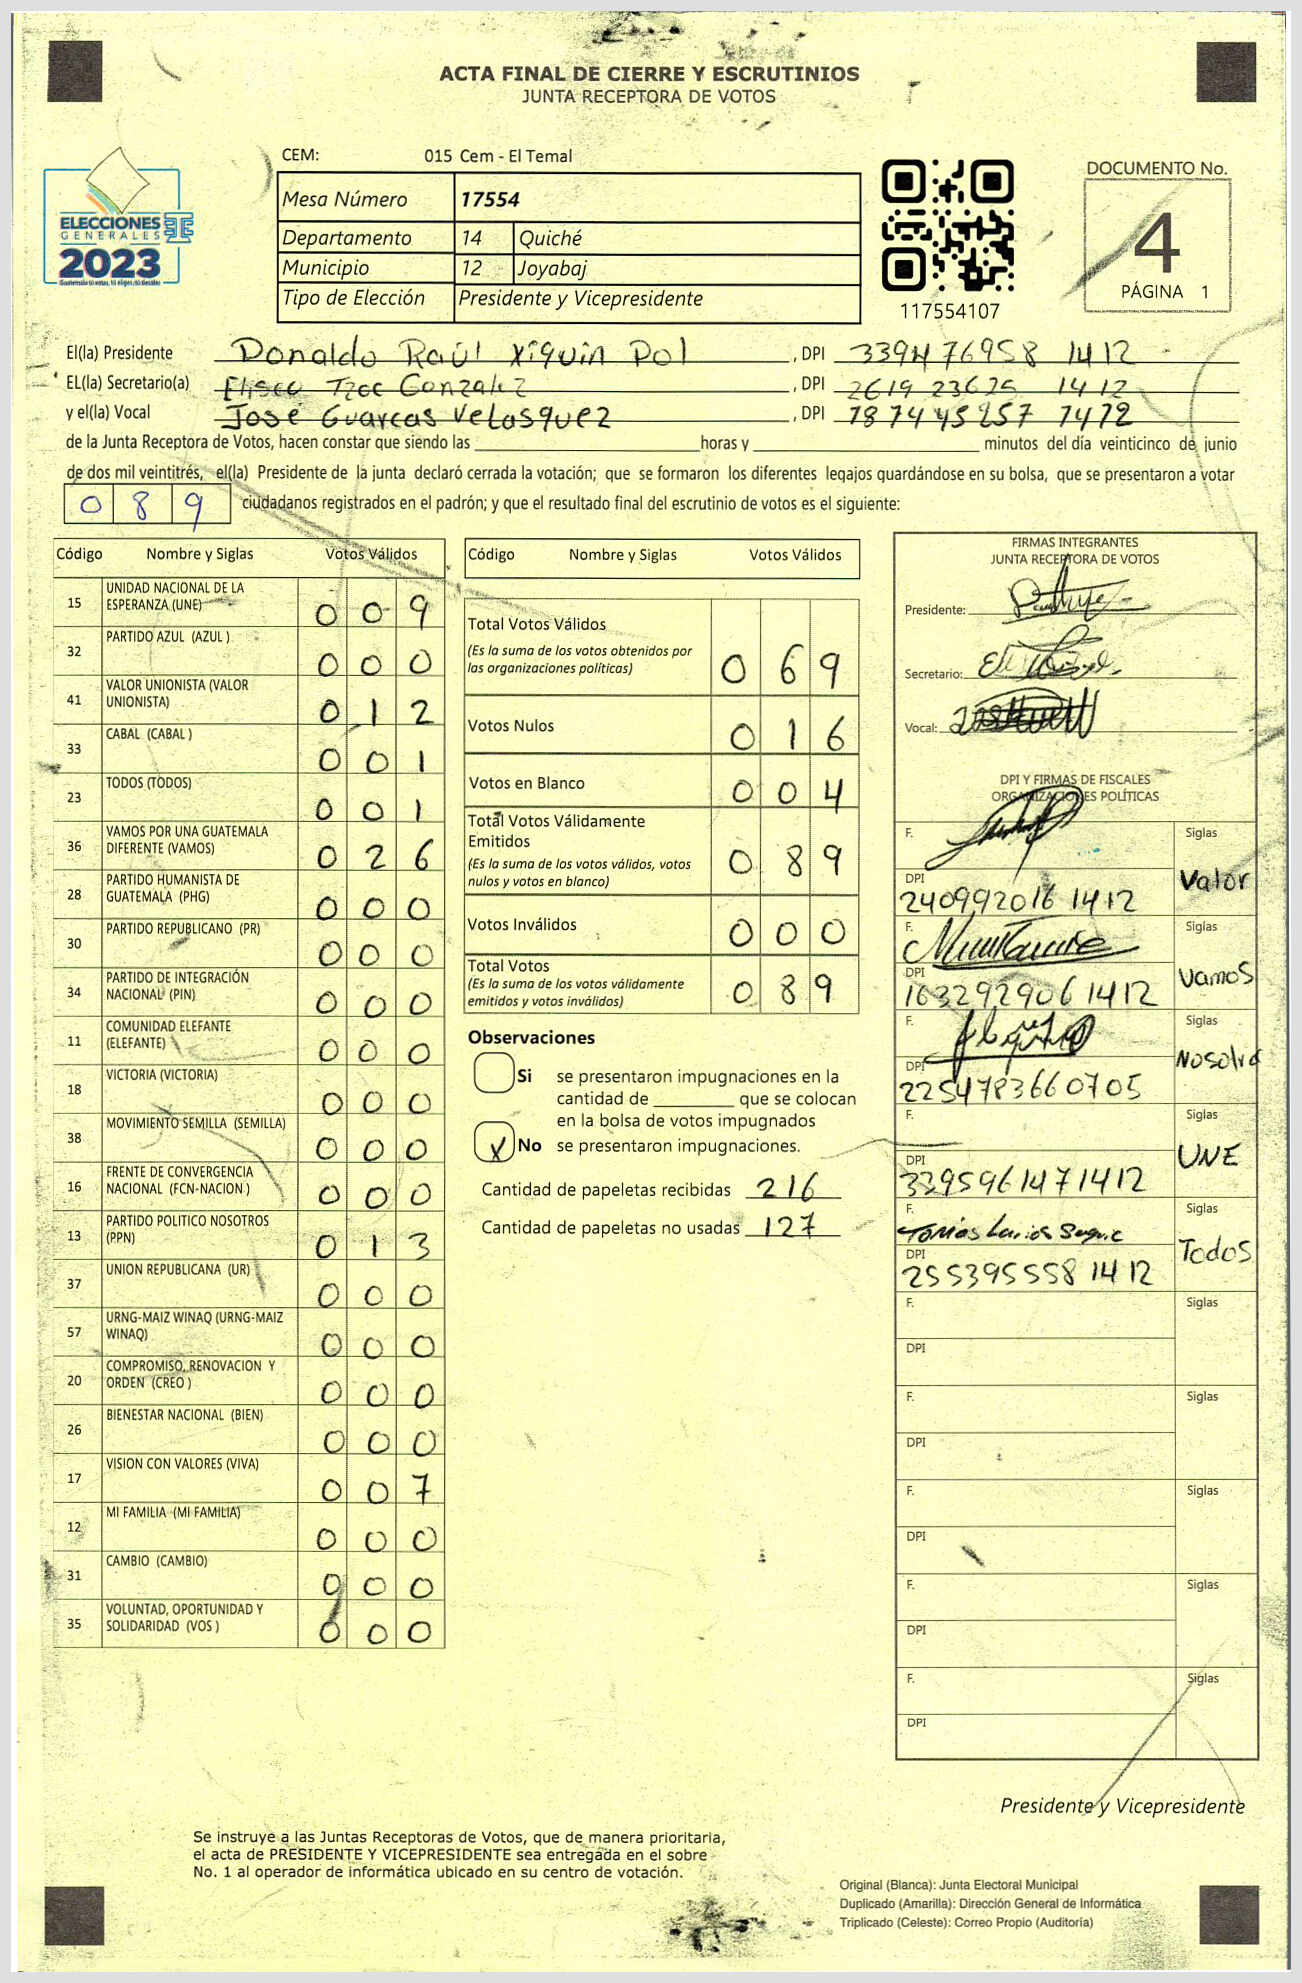 ACTA FINAL DE CIERRE Y ESCRUTINIOS
JUNTA RECEPTORA DE VOTOS
ELECCIONES
GENERALES
2023
CEM: 015 Cem - El Temal
Mesa Número 17554
Departamento 14 Quiché
Municipio 12 Joyabaj
Tipo de Elección Presidente y Vicepresidente
117554107
DOCUMENTO No.
4
PÁGINA 1
El(la) Presidente Donaldo Raúl Xiquin Pol , DPI 339476958 1412
EL(la) Secretario(a) Eliseo Tzoc Gonzalez , DPI 2619 23625 1412
y el(la) Vocal José Guarcas Velasquez , DPI 1874 45257 1412
de la Junta Receptora de Votos, hacen constar que siendo las horas y minutos del día veinticinco de junio
de dos mil veintitrés, el(la) Presidente de la junta declaró cerrada la votación; que se formaron los diferentes legajos guardándose en su bolsa, que se presentaron a votar
089 ciudadanos registrados en el padrón; y que el resultado final del escrutinio de votos es el siguiente:
Código Nombre y Siglas Votos Válidos
15 UNIDAD NACIONAL DE LA ESPERANZA (UNE) 009
32 PARTIDO AZUL (AZUL ) 000
41 VALOR UNIONISTA (VALOR UNIONISTA) 012
33 CABAL (CABAL ) 001
23 TODOS (TODOS) 001
36 VAMOS POR UNA GUATEMALA DIFERENTE (VAMOS) 026
28 PARTIDO HUMANISTA DE GUATEMALA (PHG) 000
30 PARTIDO REPUBLICANO (PR) 000
34 PARTIDO DE INTEGRACIÓN NACIONAL (PIN) 000
11 COMUNIDAD ELEFANTE (ELEFANTE) 000
18 VICTORIA (VICTORIA) 000
38 MOVIMIENTO SEMILLA (SEMILLA) 000
16 FRENTE DE CONVERGENCIA NACIONAL (FCN-NACION ) 000
13 PARTIDO POLITICO NOSOTROS (PPN) 013
37 UNION REPUBLICANA (UR) 000
57 URNG-MAIZ WINAQ (URNG-MAIZ WINAQ) 000
20 COMPROMISO, RENOVACION Y ORDEN (CREO ) 000
26 BIENESTAR NACIONAL (BIEN) 000
17 VISION CON VALORES (VIVA) 007
12 MI FAMILIA (MI FAMILIA) 000
31 CAMBIO (CAMBIO) 000
35 VOLUNTAD, OPORTUNIDAD Y SOLIDARIDAD (VOS ) 000
Código Nombre y Siglas Votos Válidos
Total Votos Válidos 069
(Es la suma de los votos obtenidos por
las organizaciones políticas)
Votos Nulos 016
Votos en Blanco 004
Total Votos Válidamente
Emitidos 089
(Es la suma de los votos válidos, votos
nulos y votos en blanco)
Votos Inválidos 000
Total Votos 089
(Es la suma de los votos válidamente
emitidos y votos inválidos)
Observaciones
Si se presentaron impugnaciones en la
cantidad de que se colocan
en la bolsa de votos impugnados
X No se presentaron impugnaciones.
Cantidad de papeletas recibidas 216
Cantidad de papeletas no usadas 127
FIRMAS INTEGRANTES
JUNTA RECEPTORA DE VOTOS
Presidente:
Secretario:
Vocal:
DPI Y FIRMAS DE FISCALES
ORGANIZACIONES POLÍTICAS
F. Siglas
DPI Valor
240992016 1412
F. Siglas
DPI Vamos
163292906 1412
F. Siglas
DPI Nosotro
2254783660705
F. Siglas
DPI UNE
3395961471412
F. Siglas
Tomás Larios
DPI Todos
255395558 1412
F. Siglas
DPI
F. Siglas
DPI
F. Siglas
DPI
F. Siglas
DPI
F. Siglas
DPI
Presidente y Vicepresidente
Se instruye a las Juntas Receptoras de Votos, que de manera prioritaria,
el acta de PRESIDENTE Y VICEPRESIDENTE sea entregada en el sobre
No. 1 al operador de informática ubicado en su centro de votación.
Original (Blanca): Junta Electoral Municipal
Duplicado (Amarilla): Dirección General de Informática
Triplicado (Celeste): Correo Propio (Auditoría)